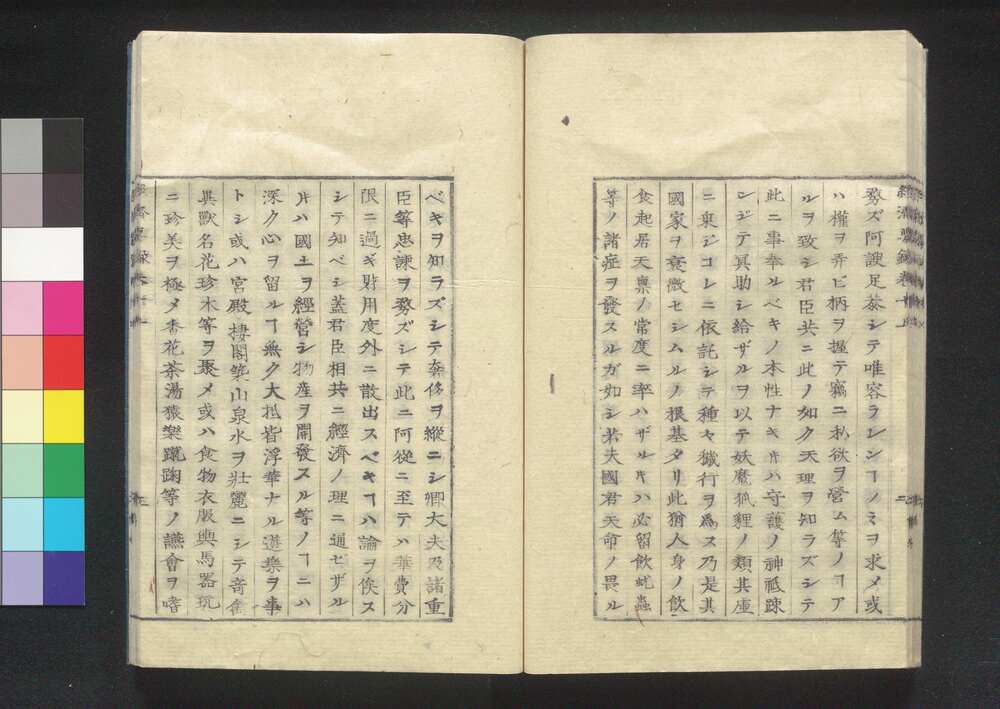 務ズ阿諛足恭シテ唯容ラレンヿノミヲ求メ或
ハ權ヲ弄ビ柄ヲ握テ竊ニ私欲ヲ營ム等ノヿア
ルヲ致シ君臣共ニ此ノ如ク天理ヲ知ラズシテ
此ニ事奉ルベキノ本性ナキ片ハ守護ノ神祗疎
ンジテ其助シ給ザルヲ以テ妖魔狐貍ノ類其虛
ニ乗ジコレニ依託シテ種々穢行ヲ爲ス乃是其
國家ヲ衰微セシムルノ根基タリ此猶人身ノ飲
食起居天禀ノ常度ニ率ハザルキハ必留飲蚘蟲
等ノ諸症ヲ發スルガ如シ若夫國君天命ノ畏ル
ベキヲ知ラズシテ奢侈ヲ縱ニシ卿大夫及諸重
臣等忠諫ヲ務ズシテ此ニ阿從ニ至テハ華費分
限ニ過ギ財用度外ニ散出スベキヿハ論ヲ俟ス
シテ知ベシ蓋君臣相共ニ經濟ノ理ニ通セザル
片ハ國土ヲ經營シ物産ヲ開發スル等ノヿニハ
深ク心ヲ留ルヿ無ク大抵皆浮華ナル遊樂ヲ事
トシ或ハ宮殿樓閣築山泉水ヲ壯麗ニシテ奇禽
異獸名花珍木等ヲ聚メ或ハ食物衣服輿馬器玩
ニ珍美ヲ極メ香花茶湯猿樂蹴鞠等ノ讌會ヲ嗜